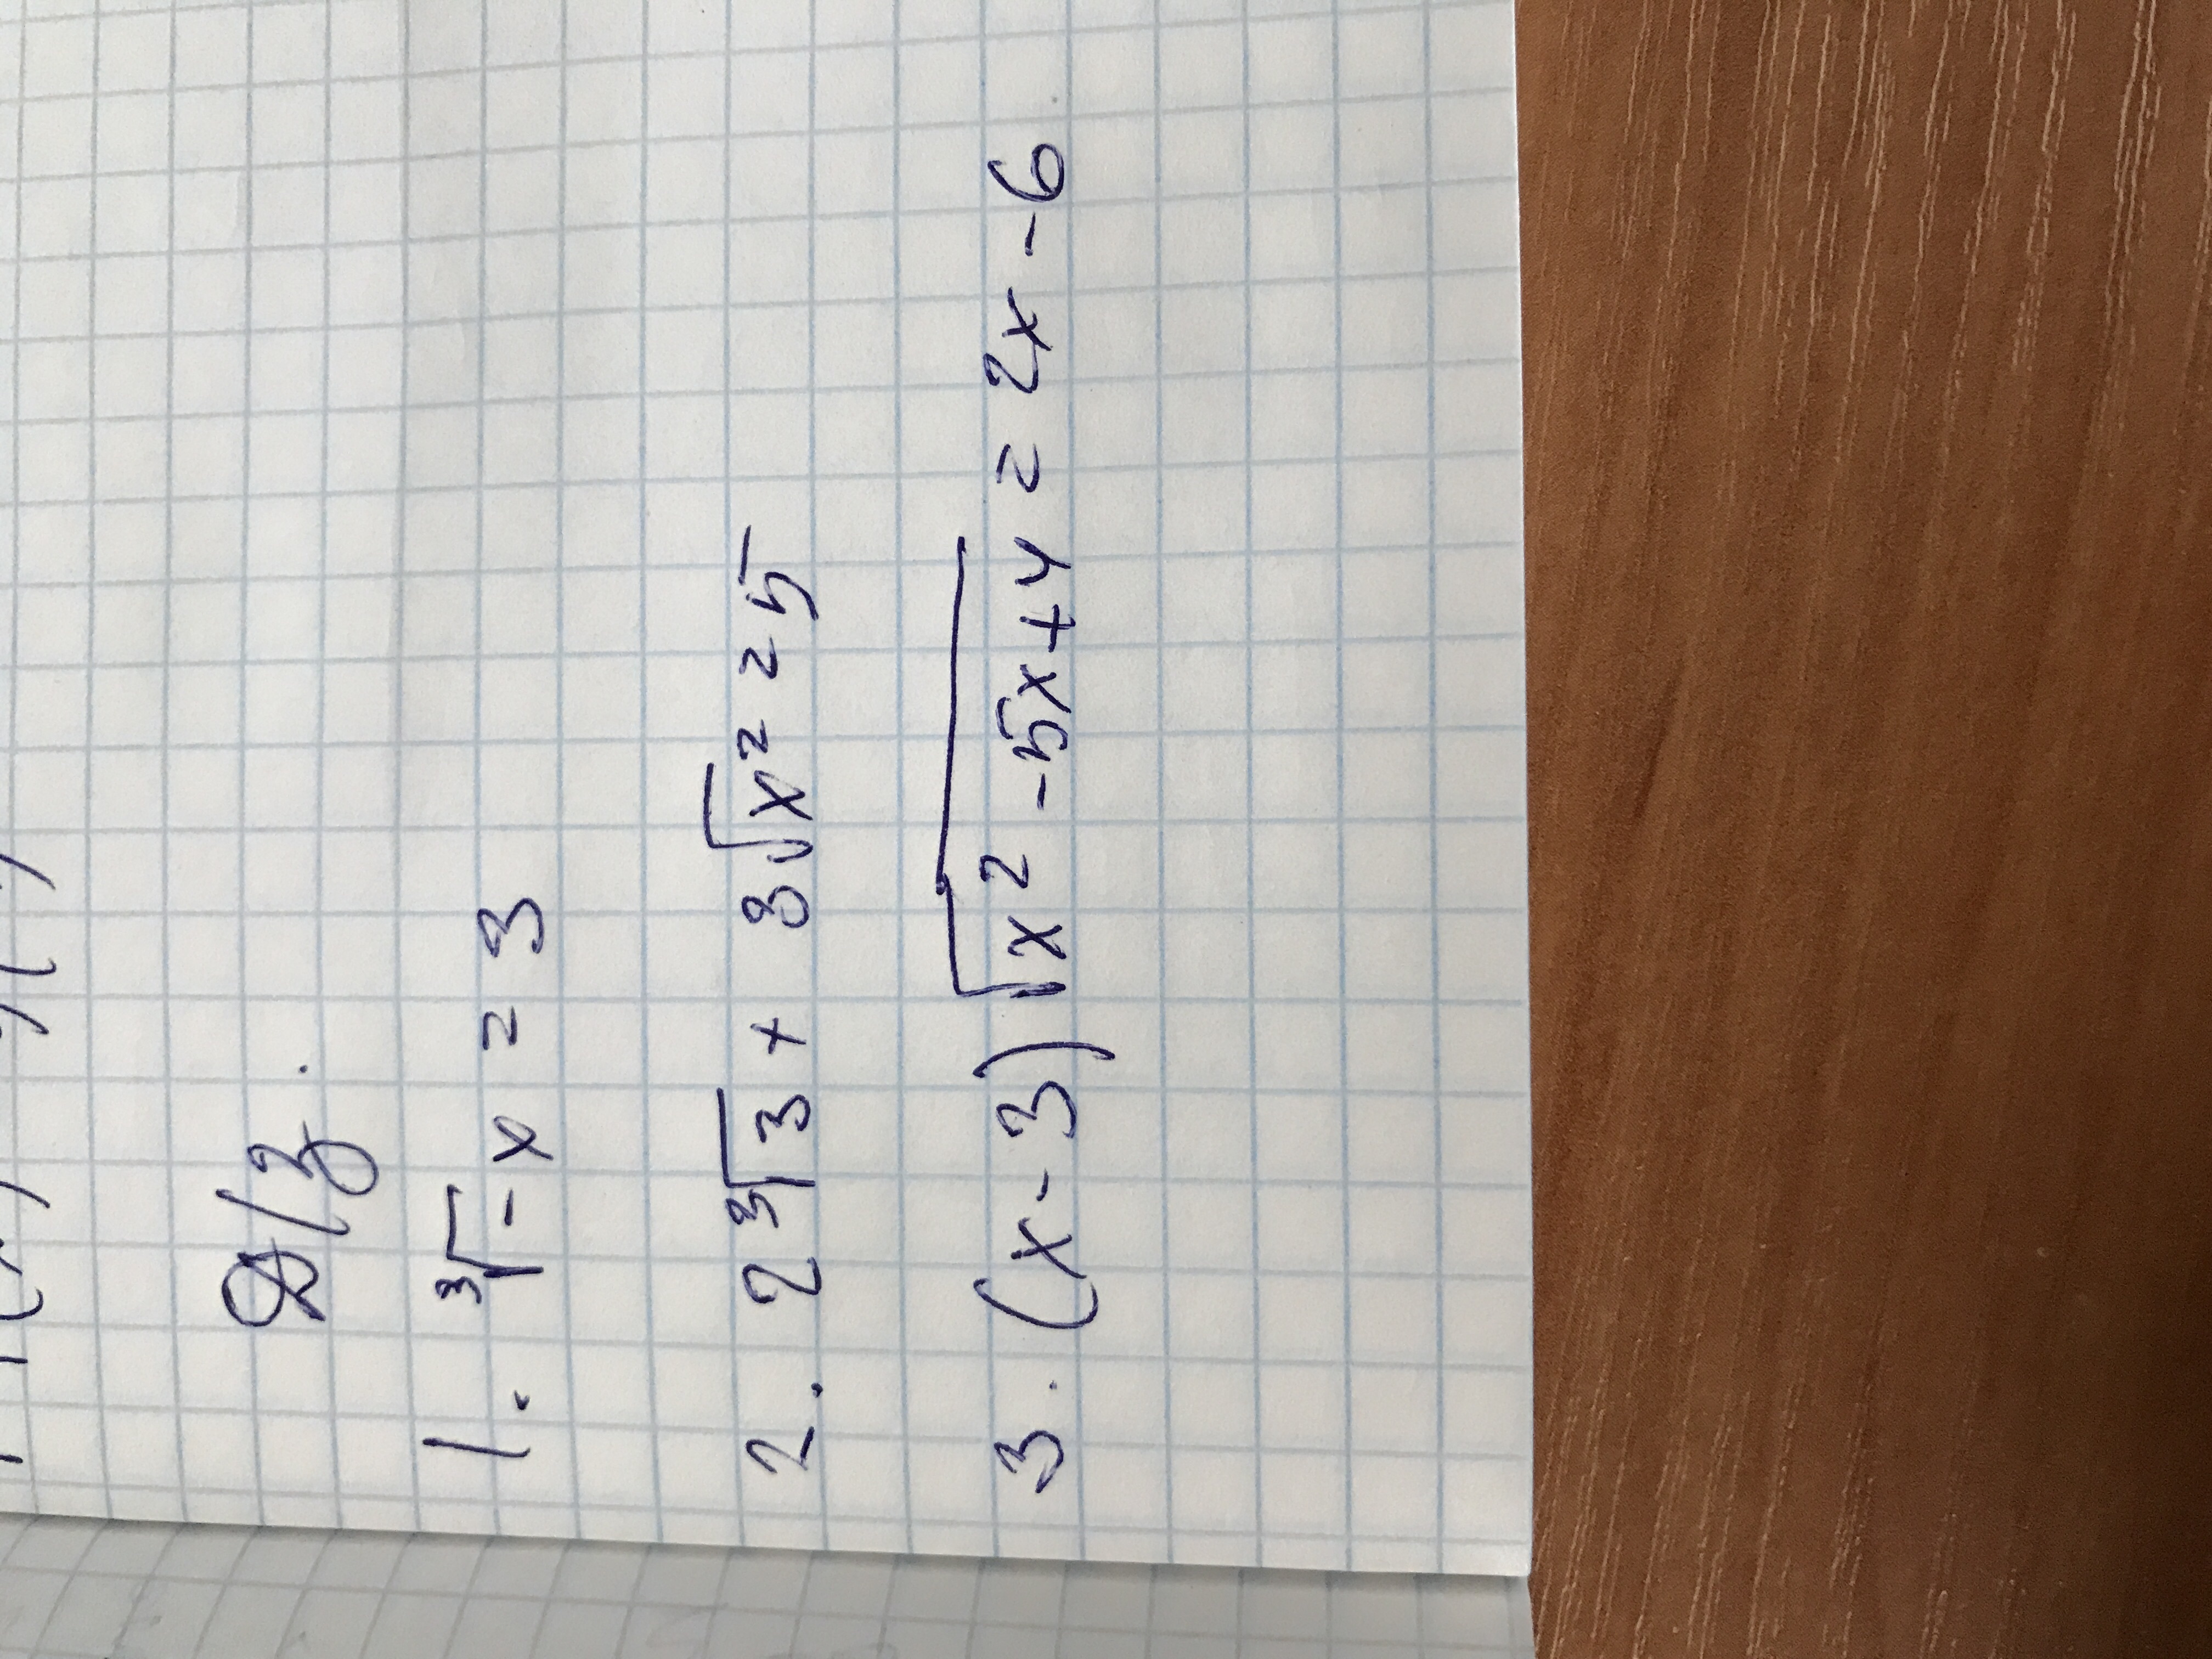 Д/З.
1. ∛-x = 3
2. 2∛3 + 3√x² = 5
3. (x-3)√x²-5x+4 = 2x-6